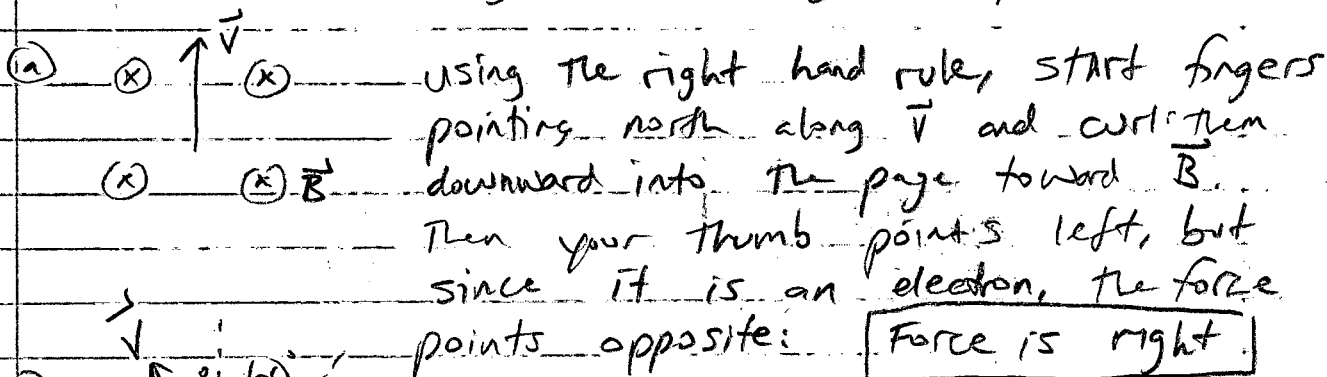 1a V⃗ using the right hand rule, start fingers
pointing north along V⃗ and curl them
downward into the page toward B⃗.
B⃗
Then your thumb points left, but
since it is an electron, the force
V⃗ points opposite: Force is right